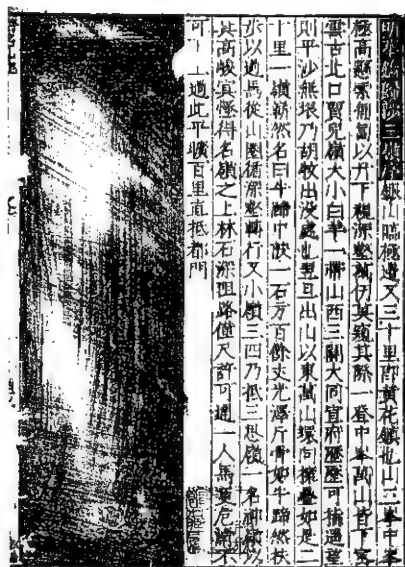 山臨極邊又三十里即黃花鎮也山二峯中峯
極高懸索以升下視深壑萬仞莫窺其際一登中峯萬山皆下密
雲古北口賢兒嶺大小白羊一帶山西三關大同宣府歷歷可指遥望
則平沙無垠乃胡牧出没處也翌旦出山以東萬山環向稠疊如是二
十里一嶺嶄然名曰牛蹄中陜一石方百餘丈光滑如牛蹄然扶
氷以過馬從山圈循深壑轉行又小嶺三四乃抵三思嶺一名神嶺以
其高峻真怪得名嶺之上林石深阻路僅尺許可通一人馬危不
可上過此平曠百里直抵都門